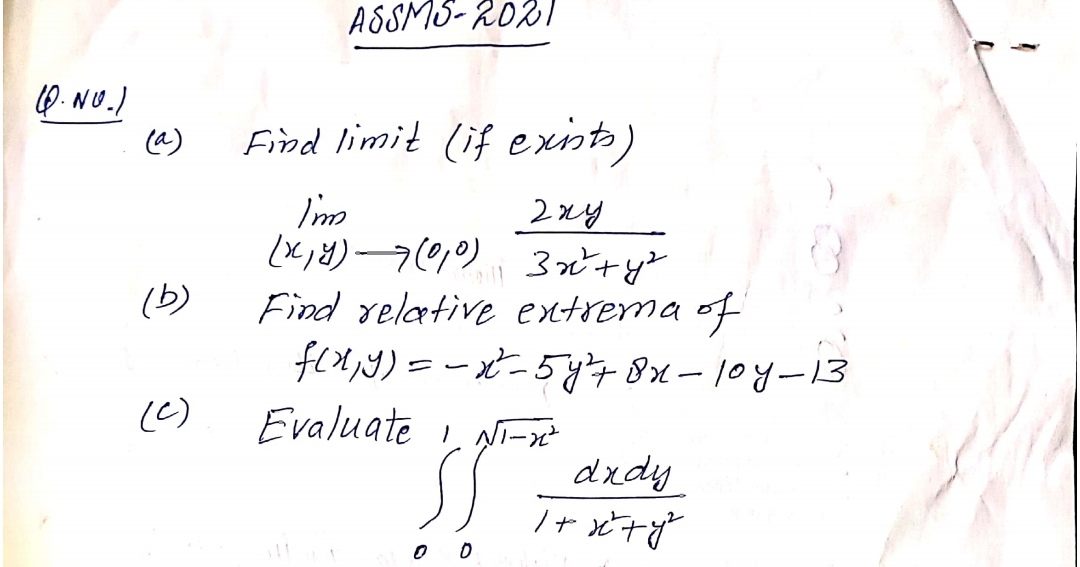 ASSMS-2021
Q.NO.1
(a) Find limit (if exists)
lim (x,y)→(0,0) 2xy / 3x²+y²
(b) Find relative extrema of
f(x,y) = -x²-5y²+8x-10y-13
(c) Evaluate
∫₀¹ ∫₀^√1-x² dxdy / 1+x²+y²